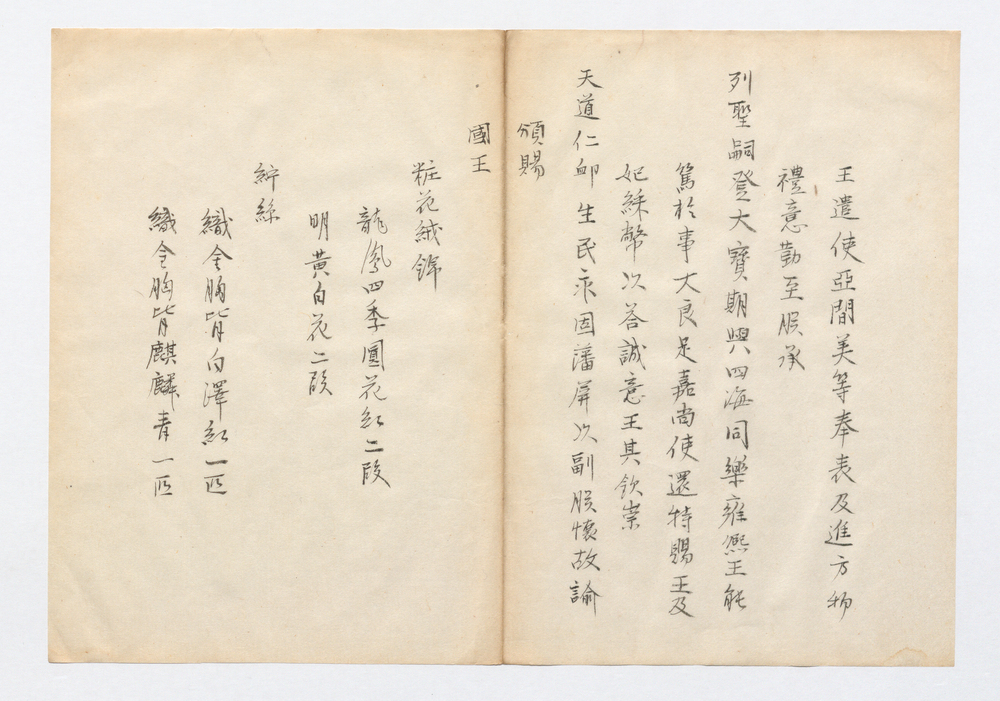 王遣使亞間美等奉表及進方物
禮意勤至朕承
列聖嗣登大寶期與四海同樂雍熙王能
篤於事大良足嘉尚使還特賜王及
妃綵幣以荅誠意王其欽崇
天道仁卹生民永固藩屏以副朕懷故諭
頒賜
國王
粧花絨錦
龍鳳四季圓花紅二段
明黃白花二段
紵絲
織金胸背白澤紅一匹
織金胸背麒麟青一匹